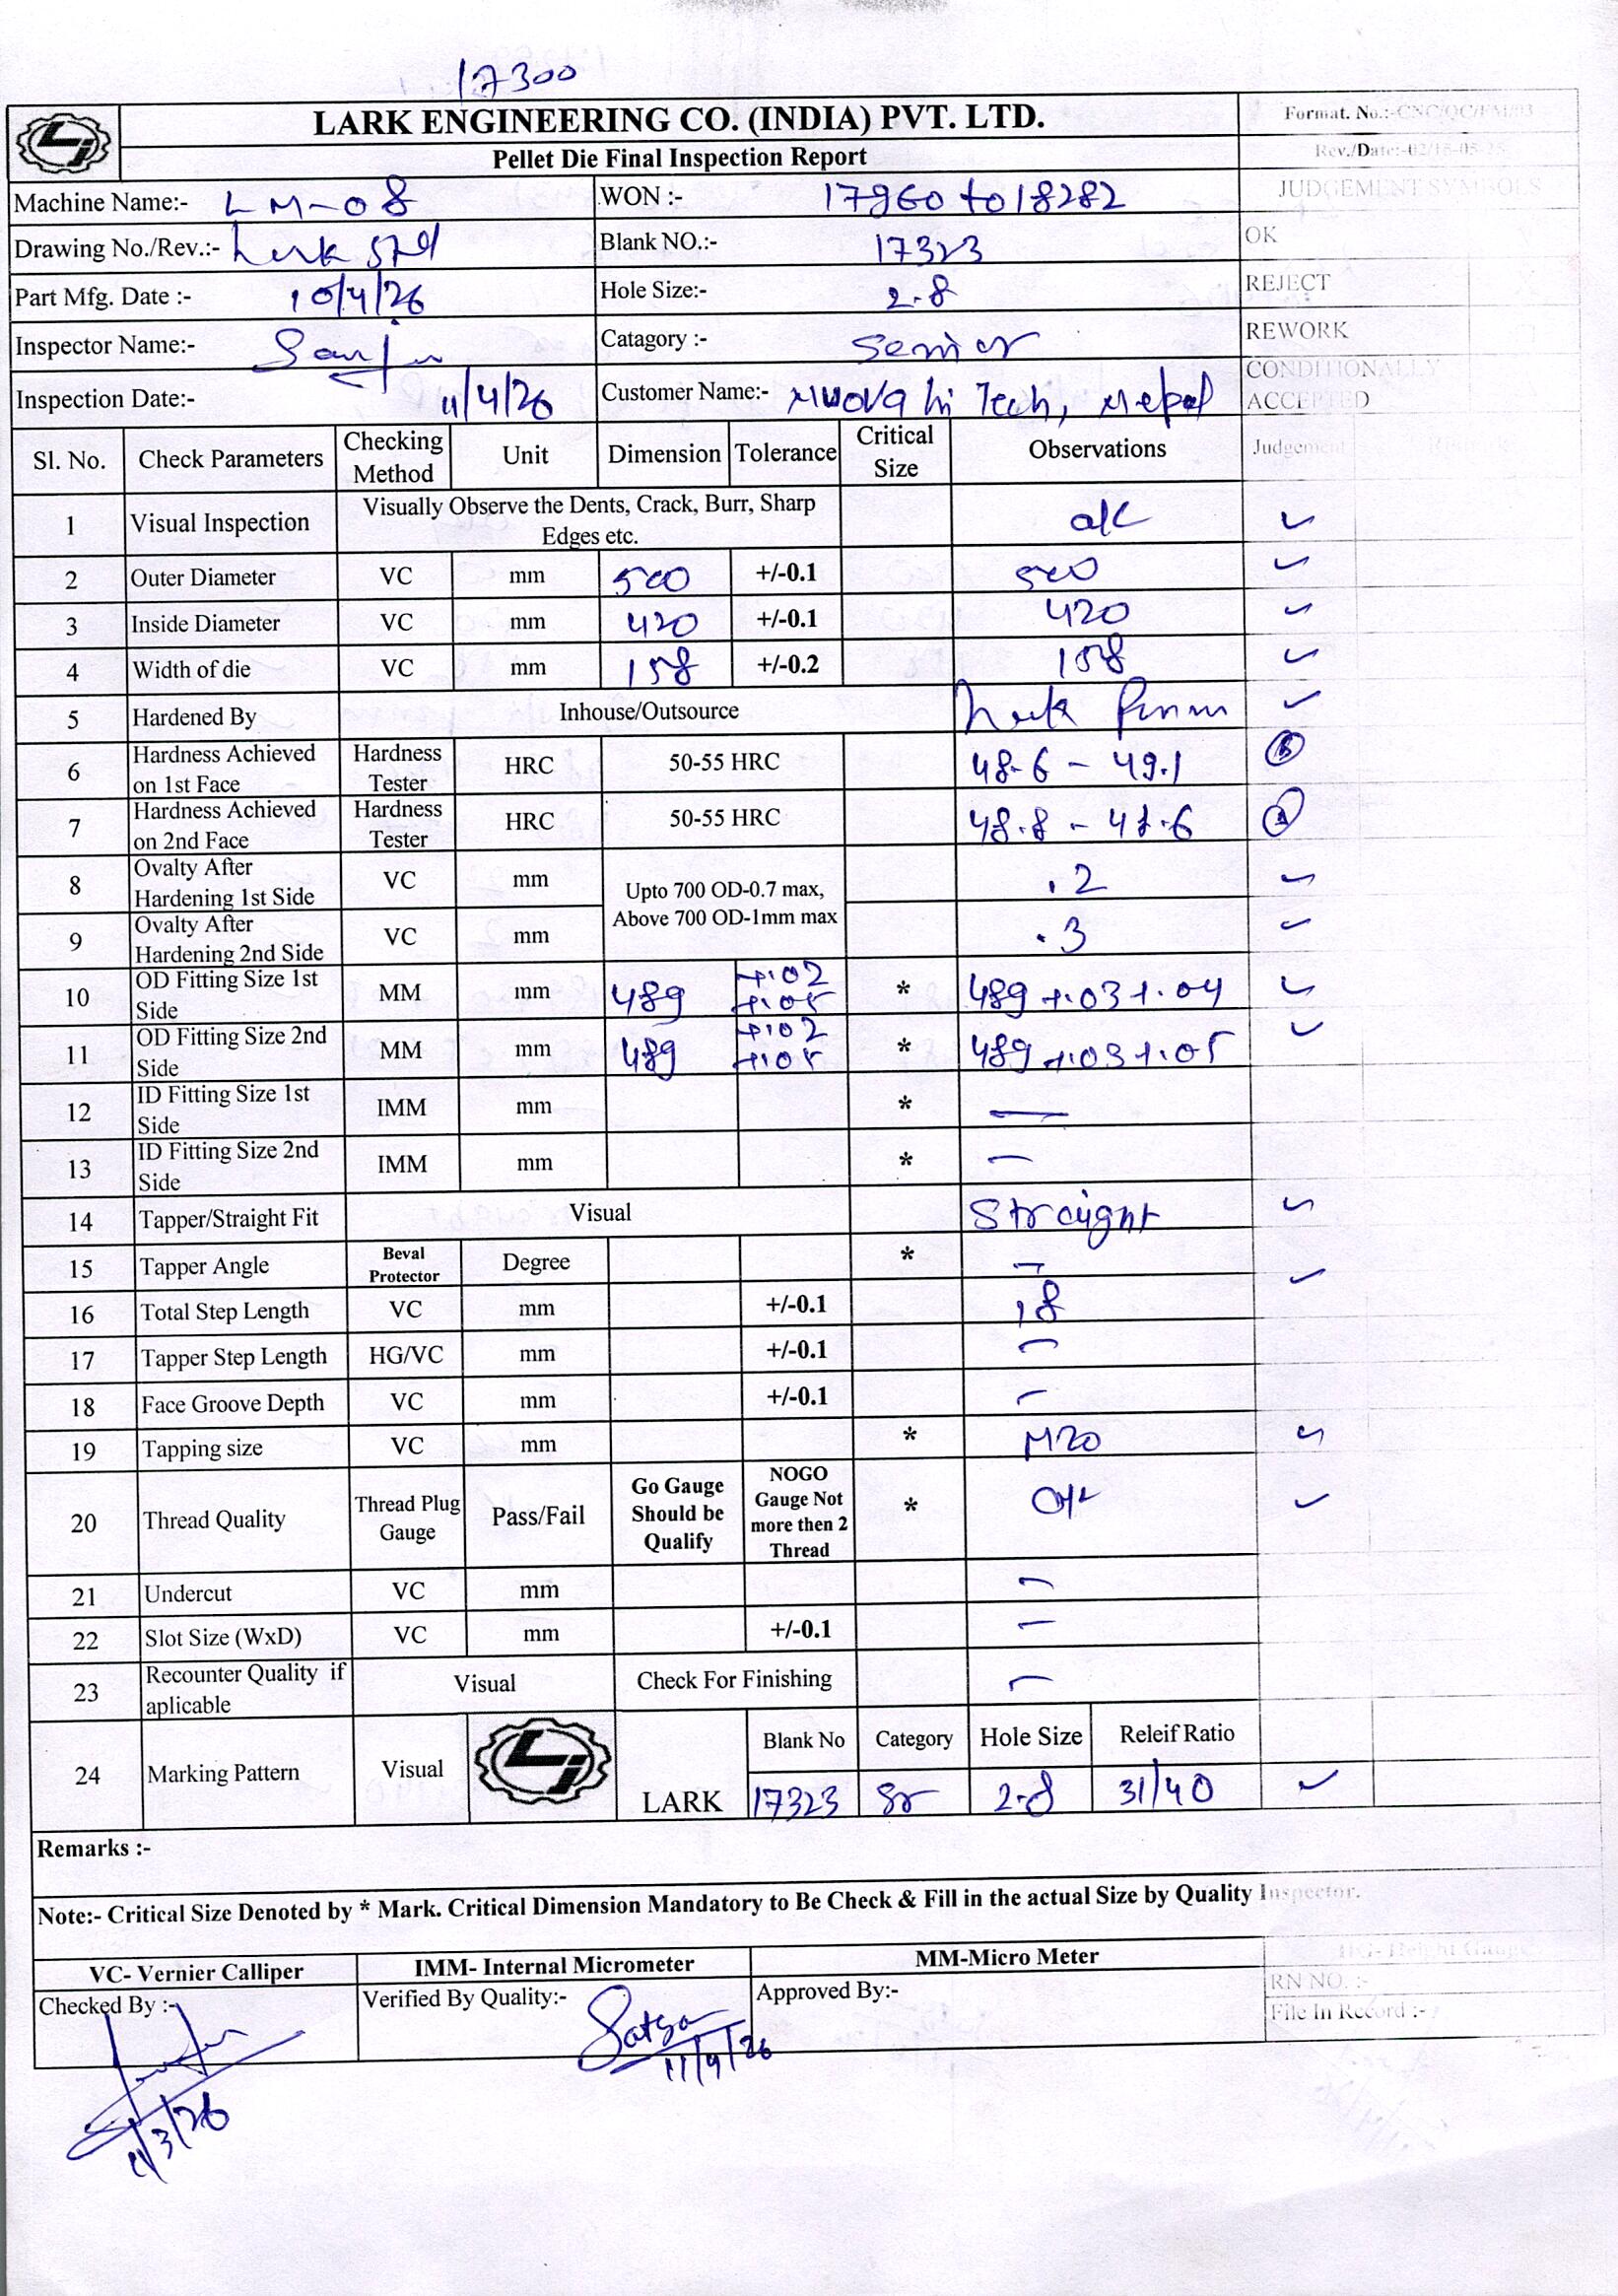 17300
LARK ENGINEERING CO. (INDIA) PVT. LTD.
Format. No.:-CNC/QC/FM/03
Pellet Die Final Inspection Report
Rev./Date:-02/15-05-25
Machine Name:- LM-08 WON :- 17960 to 18282 JUDGEMENT SYMBOLS
Drawing No./Rev.:- Lark STd Blank NO.:- 17323 OK
Part Mfg. Date :- 10/4/26 Hole Size:- 2.8 REJECT
Inspector Name:- Sanju Catagory :- Senior REWORK
Inspection Date:- 11/4/26 Customer Name:- Nuova hi Tech, Nepal CONDITIONALLY ACCEPTED
Sl. No. Check Parameters Checking Method Unit Dimension Tolerance Critical Size Observations Judgement
1 Visual Inspection Visually Observe the Dents, Crack, Burr, Sharp Edges etc. ok ✓
2 Outer Diameter VC mm 500 +/-0.1 500 ✓
3 Inside Diameter VC mm 420 +/-0.1 420 ✓
4 Width of die VC mm 158 +/-0.2 158 ✓
5 Hardened By Inhouse/Outsource ✓
6 Hardness Achieved on 1st Face Hardness Tester HRC 50-55 HRC 48.6 - 49.1
7 Hardness Achieved on 2nd Face Hardness Tester HRC 50-55 HRC 48.8 -
8 Ovalty After Hardening 1st Side VC mm Upto 700 OD-0.7 max, Above 700 OD-1mm max .2 ✓
9 Ovalty After Hardening 2nd Side VC mm .3 ✓
10 OD Fitting Size 1st Side MM mm 489 +.02 +.05 * 489 +.03 +.04 ✓
11 OD Fitting Size 2nd Side MM mm 489 +.02 +.05 * 489 +.03 +.05 ✓
12 ID Fitting Size 1st Side IMM mm * —
13 ID Fitting Size 2nd Side IMM mm * —
14 Tapper/Straight Fit Visual Straight ✓
15 Tapper Angle Beval Protector Degree * —
16 Total Step Length VC mm +/-0.1 18 ✓
17 Tapper Step Length HG/VC mm +/-0.1 —
18 Face Groove Depth VC mm +/-0.1 —
19 Tapping size VC mm * M20 ✓
20 Thread Quality Thread Plug Gauge Pass/Fail Go Gauge Should be Qualify NOGO Gauge Not more then 2 Thread * OK ✓
21 Undercut VC mm —
22 Slot Size (WxD) VC mm +/-0.1 —
23 Recounter Quality if aplicable Visual Check For Finishing —
24 Marking Pattern Visual LARK Blank No Category Hole Size Releif Ratio
17323 Sr 2.8 31/40 ✓
Remarks :-
Note:- Critical Size Denoted by * Mark. Critical Dimension Mandatory to Be Check & Fill in the actual Size by Quality Inspector.
VC- Vernier Calliper IMM- Internal Micrometer MM-Micro Meter HG- Height Gauge
Checked By :- Verified By Quality:- Satya Approved By:- RN NO. :-
File In Record :-
11/4/26
11/3/26